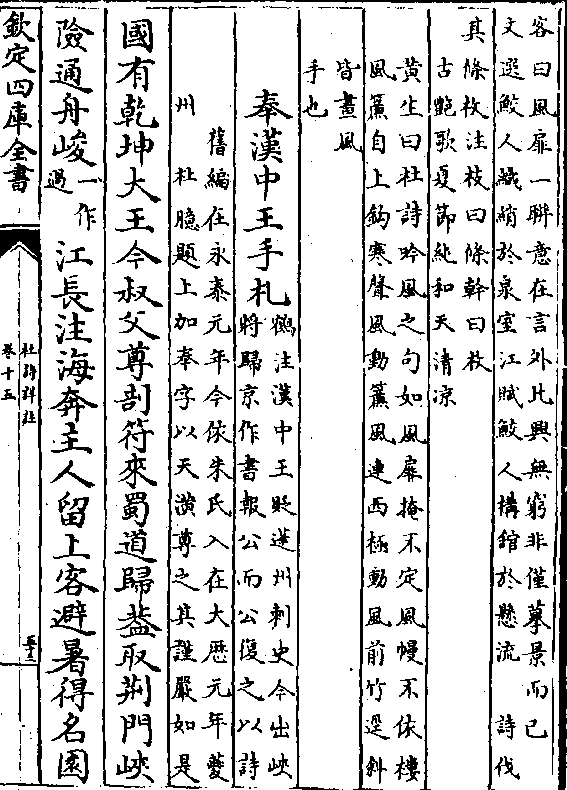 客曰風扉一聯意在言外比興無窮非僅摹景而已
文選鮫人織綃於泉室江賦鮫人構館於懸流 詩伐
其條枚注枝曰條幹曰枚
古艷歌夏節純和天清涼
黃生曰杜詩吟風之句如風扉掩不定風幔不依樓
風簾自上鉤寒聲風動簾風連西極動風前竹逕斜
皆畫風
手也
奉漢中王手札 鶴注漢中王貶蓬州刺史今出峽
將歸京作書報公而公復之以詩
舊編在永泰元年今依朱氏入在大厯元年夔
州 杜臆題上加奉字以天潢尊之其謹嚴如是
國有乾坤大王今叔父尊剖符來蜀道歸蓋取荆門峽
險通舟峻一作過江長注海奔主人留上客避暑得名園
欽定四庫全書
杜詩詳註
卷十五